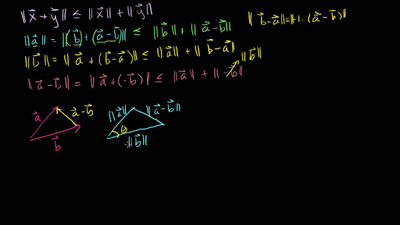 ‖x⃗ + y⃗‖ ≤ ‖x⃗‖ + ‖y⃗‖
‖a⃗‖ = ‖(b⃗) + (a⃗ - b⃗)‖ ≤ ‖b⃗‖ + ‖a⃗ - b⃗‖
‖b⃗ - a⃗‖ = ‖-1·(a⃗ - b⃗)‖
‖b⃗‖ = ‖a⃗ + (b⃗ - a⃗)‖ ≤ ‖a⃗‖ + ‖b⃗ - a⃗‖
‖a⃗ - b⃗‖ = ‖a⃗ + (-b⃗)‖ ≤ ‖a⃗‖ + ‖-b⃗‖
‖b⃗‖
a⃗
a⃗ - b⃗
b⃗
‖a⃗‖
‖a⃗ - b⃗‖
θ
‖b⃗‖